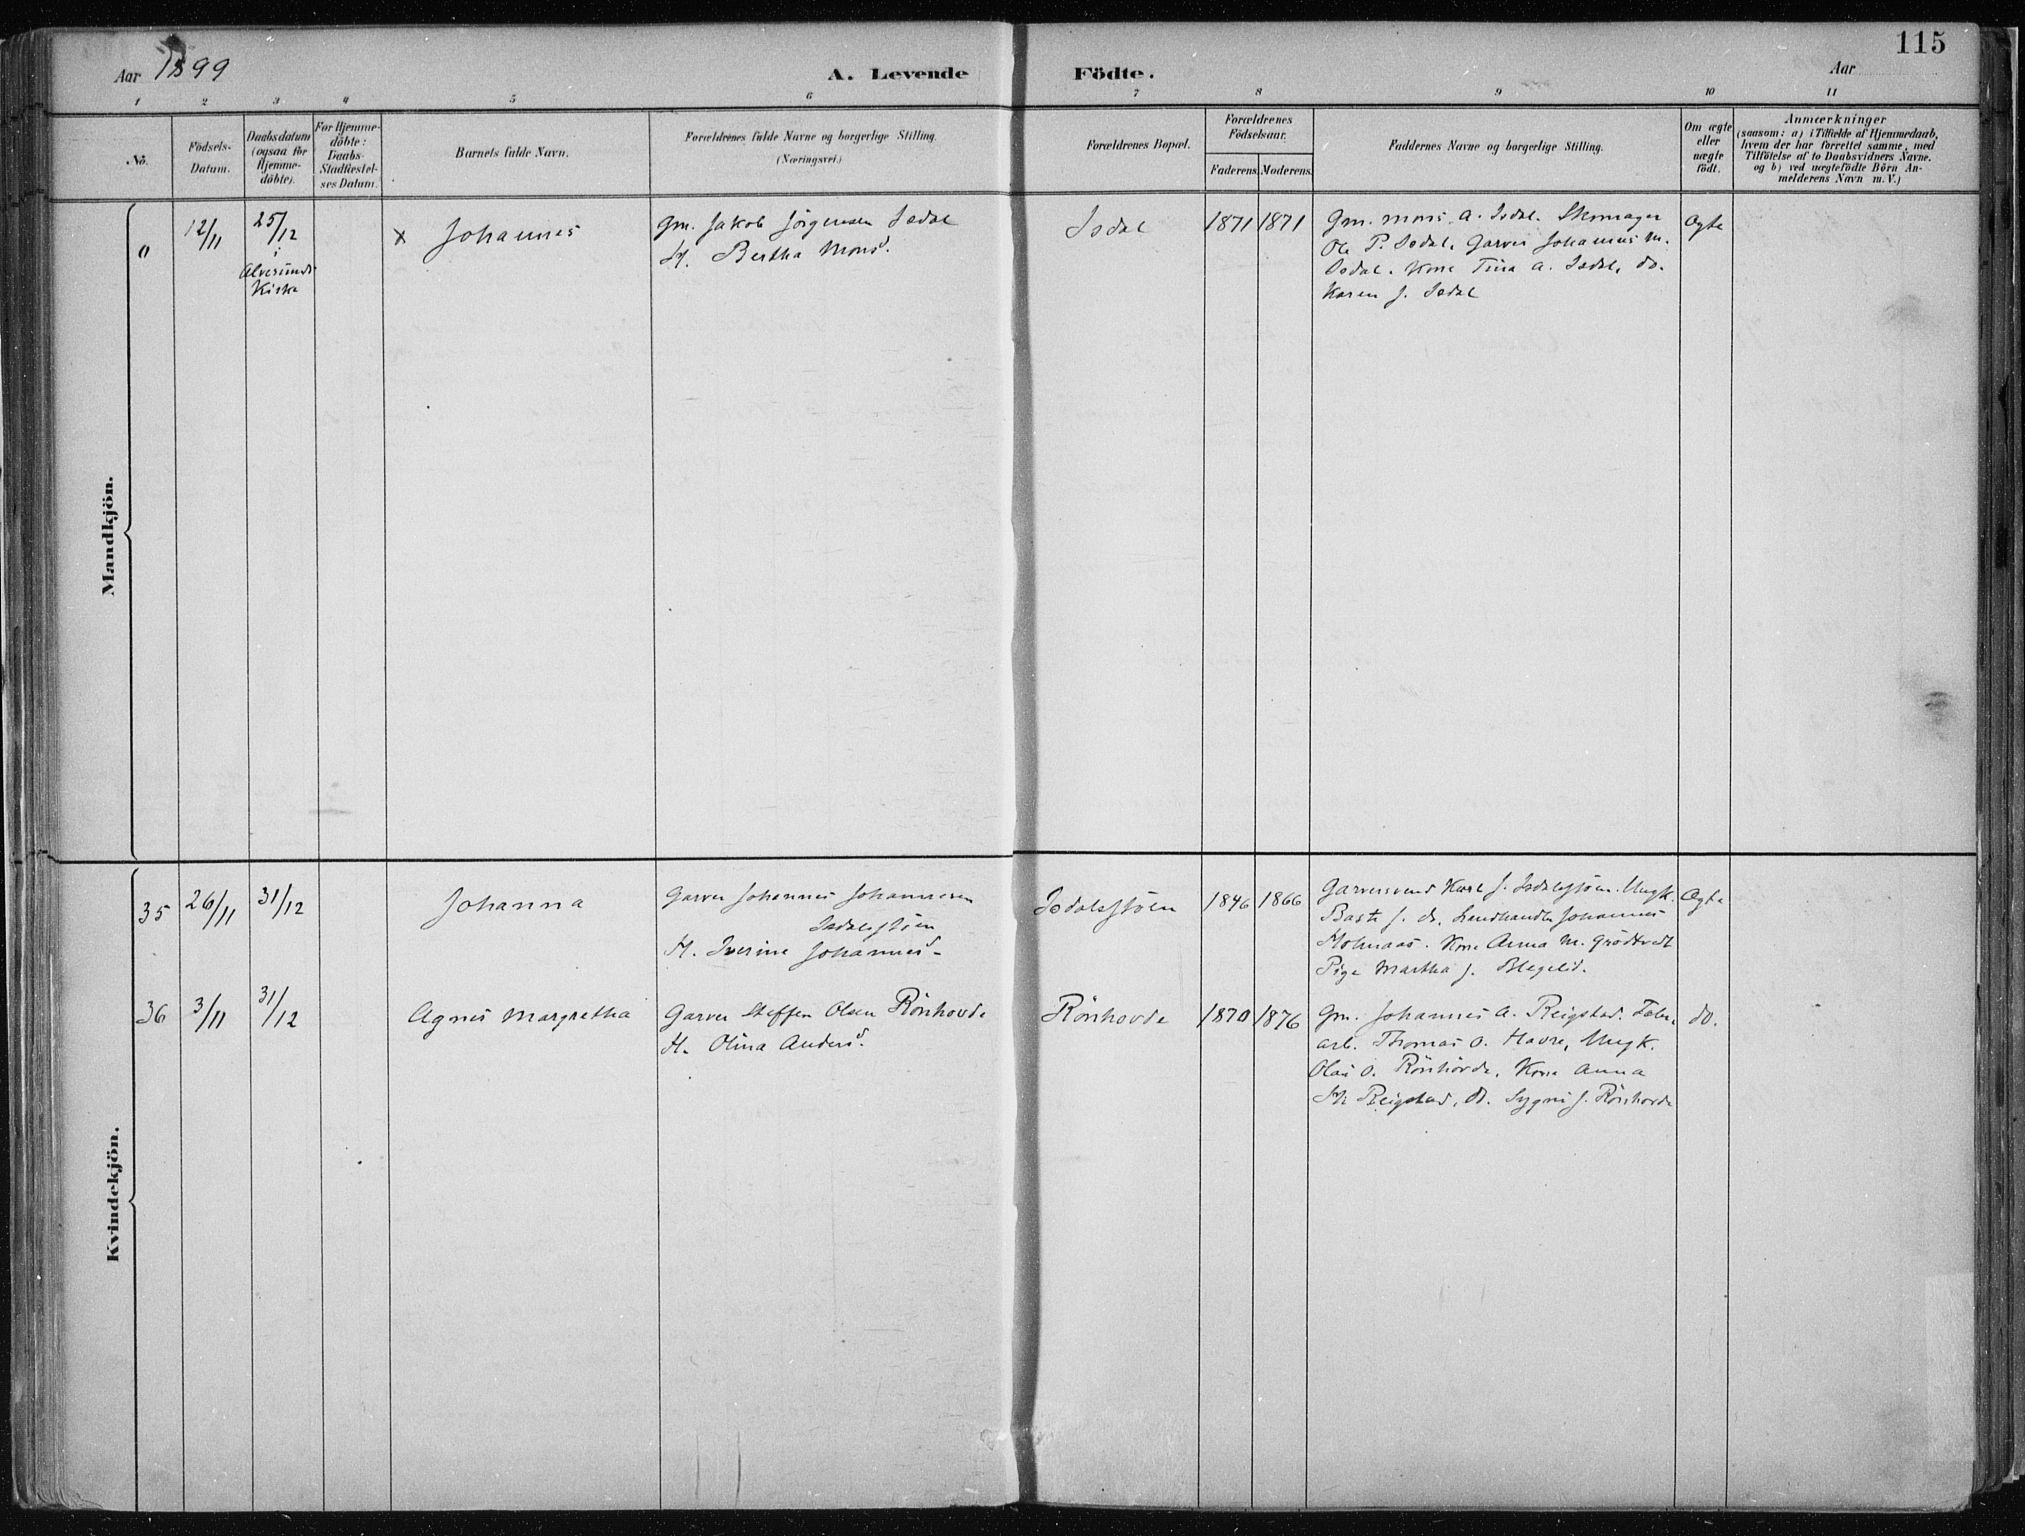 115
Aar 1899
A. Levende Födte.
Aar
1 2 3 4 5 6 7 8 9 10 11
No.
Födsels-
Datum.
Daabsdatum
(ogsaa for
Hjemme-
döbte).
For Hjemme-
döbte:
Daabs-
Stadfæstel-
ses Datum.
Barnets fulde Navn.
Forældrenes fulde Navne og borgerlige Stilling.
(Næringsvei.)
Forældrenes Bopæl.
Forældrenes
Födselsaar.
Faderens. Moderens.
Faddernes Navne og borgerlige Stilling.
Om ægte
eller
uægte
födt.
Anmærkninger
(saasom: a) i Tilfælde af Hjemmedaab,
hvem der har forrettet samme, med
Tilföielse af to Daabsvidners Navne.
og b) ved uægtefödte Börn An-
melderens Navn m. V.)
Mandkjön.
0
12/11
25/12
i
Alversunds
Kirke
x Johannes
Gm. Jakob Jörgensen Isdal
H. Bertha Monsd.
Isdal
1871 1871
Gm. Mons A. Isdal. Skomager
Ole P. Isdal, Garver Johannes M.
Isdal. Kone Tina A. Isdal, do.
Karen J. Isdal
Ægte
Kvindekjön.
35
26/11
31/12
Johanna
Garver Johannes Johannesen
Isdalsstöen
H. Iverine Johannesd.
Isdalsstöen
1846 1866
Garversvend Karl J. Isdalsstöen. Ungk.
J. do. Landhandler Johannes
Holmaas. Kone Anna M. Grödtvedt
Pige Martha J.
Ægte
36
3/11
31/12
Agnes Margretha
Garver Steffen Olsen Rönhovde
H. Olina Andersd.
Rönhovde
1870 1876
Gm. Johannes A. Reigstad. Fabr.
arb. Thomas O. Havre, Ungk.
Olai O. Rönhovde, Kone Anna
Reigstad, do. Sygni J. Rönhovde
do.